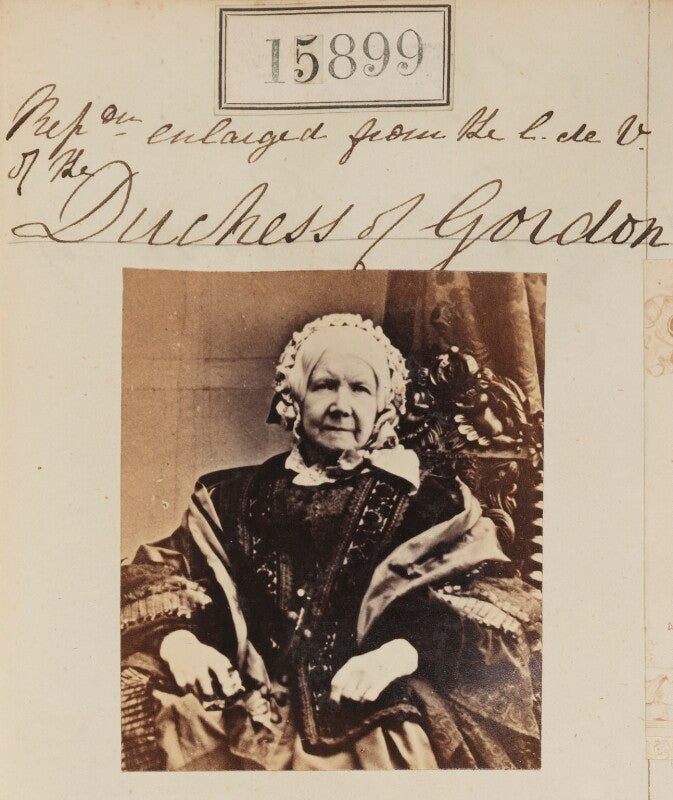 15899
Repᵒⁿ enlarged from the C. de V.
of the
Duchess of Gordon